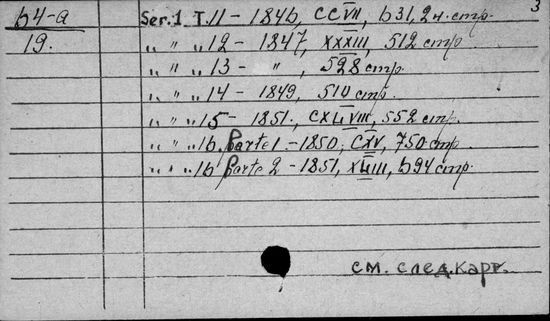 3
64-a Ser.1 T.11 - 1846, CCVII, 631, 2н. стр.
19. " " " 12 - 1847, XXXIII, 512 стр.
" " " 13 - " , 528 стр.
" " " 14 - 1849, 510 стр.
" " " 15 - 1851, CXLVIII, 552 стр.
" " " 16 parte 1 - 1850, CXV, 750 стр.
" " " 16 parte 2 - 1851, XLIII, 694 стр.
см. след. карт.